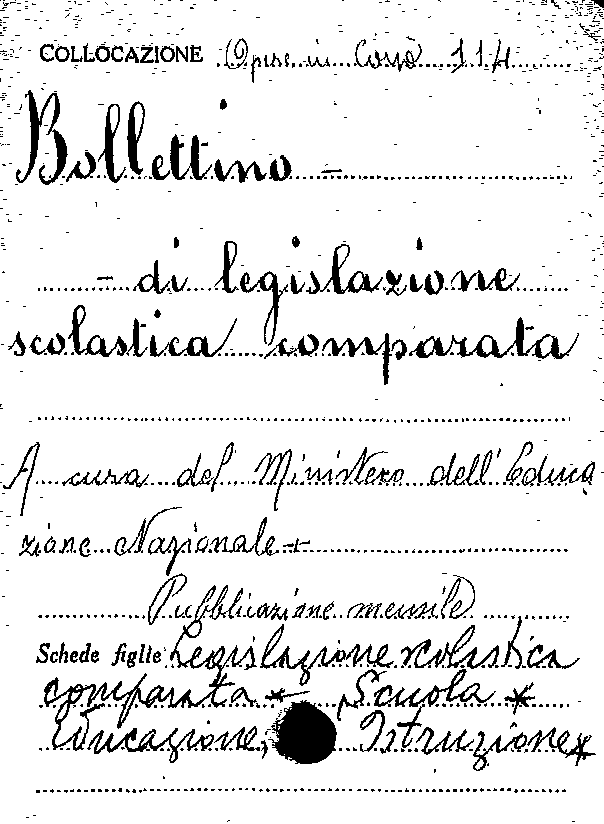 COLLOCAZIONE Opere in Corso 114
Bollettino -
- di legislazione
scolastica comparata
A cura del Ministero dell'Educa
zione Nazionale -
Pubblicazione mensile
Schede figlie Legislazione scolastica
comparata * Scuola *
Educazione, Istruzione *